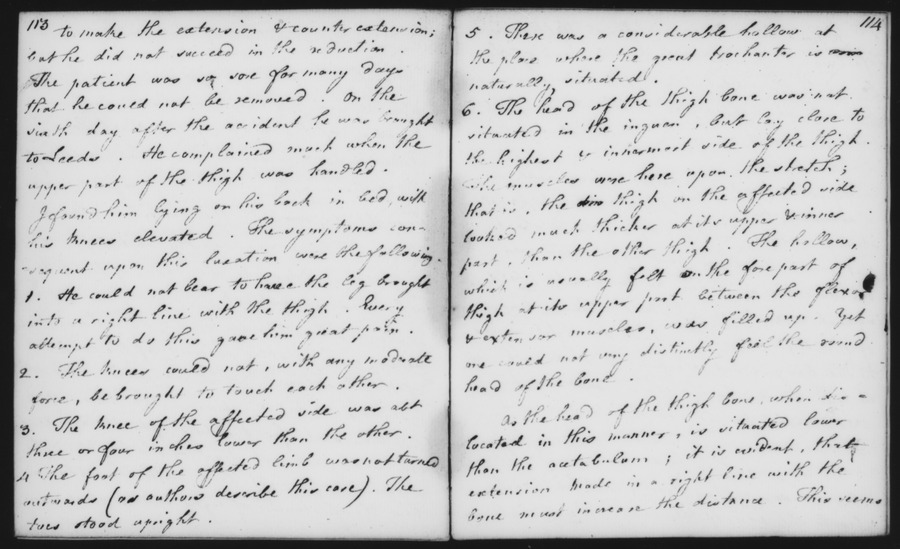 113
to make the extension & counter extension;
but he did not succeed in the reduction.
The patient was so sore for many days
that he coued not be removed. On the
sixth day after the accident he was brought
to Leeds. He complained much when the
upper part of the thigh was handled.
I found him lying on his back in bed, with
his knees elevated. The symptoms con-
sequent upon this luxation were the following.
1. He could not bear to have the leg brought
into a right line with the thigh. Every
attempt to do this gave him great pain.
2. The knees could not, with any moderate
force, be brought to touch each other.
3. The knee of the affected side was abt
three or four inches lower than the other.
4 The foot of the affected limb was not turned
outwards (as authors describe this case). The
toes stood upright.
114
5. There was a considerable hollow at
the place where the great trochanter is
naturally situated.
6. The head of the thigh bone was not
situated in the inguen, but lay close to
the highest & innermost side of the thigh.
The muscles were here upon the stretch;
that is, the thigh on the affected side
looked much thicker at its upper & inner
part, than the other thigh. The hollow,
which is usually felt on the fore part of
thigh at its upper part between the flexor
& extensor muscles, was filled up. Yet
one could not very distinctly feel the round
head of the bone.
As the head of the thigh bone, when dis=
located in this manner, is situated lower
than the acetabulum; it is evident, that
extension made in a right line with the
bone must increase the distance. This seems